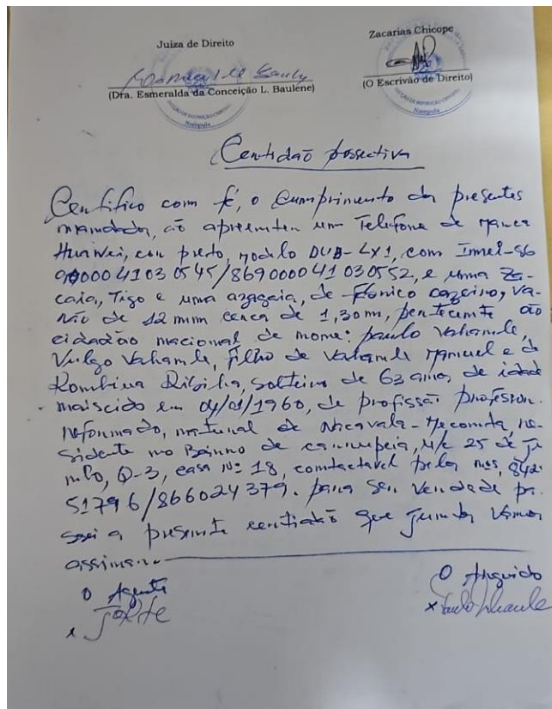 Juiza de Direito
Zacarias Chicope
(Dra. Esmeralda da Conceição L. Baulene)
(O Escrivão de Direito)
Nampula
Nampula
Certidão possectiva
Certifico com fé, o Cumprimento da presentes
mandado, ao apreender um Telefone de marca
Huawei, cor preto, modelo DUB-LX1, com Imei-86
9000041030545/869000041030552, e uma
e uma azagaia, de
de 12 mim cerca de 1,30m, pertecente ao
cidadão nacional de nome: paulo Vahamle,
Vulgo Vahamle, filho de Vahamle Manuel e de
Rombina solteiro de 63 anos de idade
maiscido em 04/01/1960, de profissão professor
reformado, natural de Nicavala-Meconta, re-
sidente no Bairro de carrupeia, U/C 25 de Ju
nho, Q-3, casa Nº 18, contactavel pelos nos, 842
51796/866024379. para ser Verdade pa
ssei a presente certidão que juntos vamos
assinar.
O Agente
O Arguido
x
x Paulo